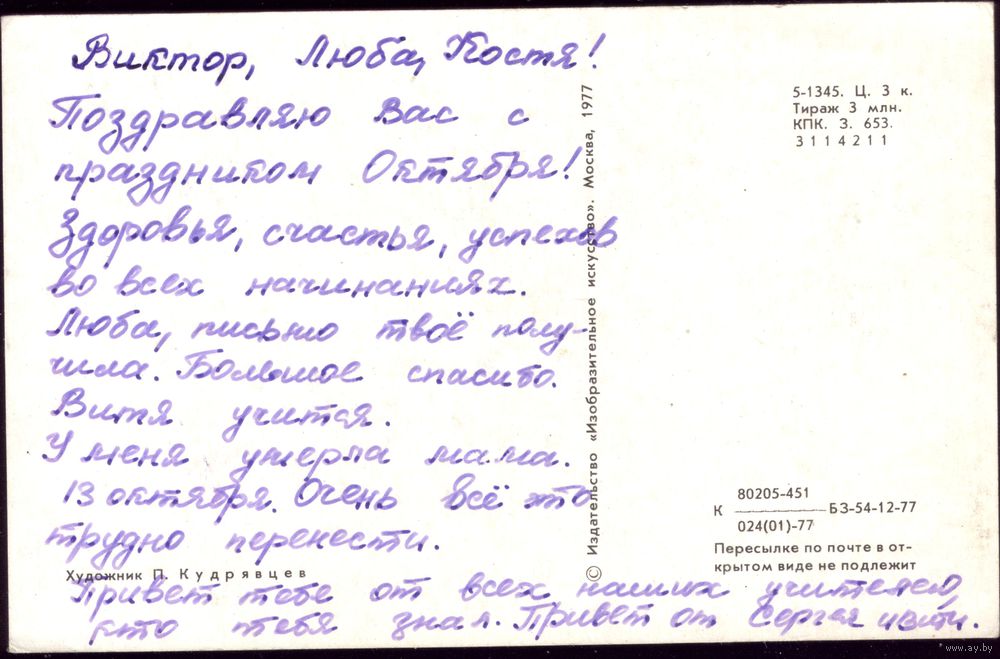 Виктор, Люба, Костя!
Поздравляю Вас с
праздником Октября!
Здоровья, счастья, успехов
во всех начинаниях.
Люба, письмо твоё полу-
чила. Большое спасибо.
Витя учится.
У меня умерла мама.
13 октября. Очень всё это
трудно перенести.
Привет тебе от всех наших учителей,
кто тебя знал. Привет от Сергея
Художник П. Кудрявцев
© Издательство «Изобразительное искусство». Москва, 1977
5-1345. Ц. 3 к.
Тираж 3 млн.
КПК. З. 653.
3114211
80205-451
К ——— БЗ-54-12-77
024(01)-77
Пересылке по почте в от-
крытом виде не подлежит
www.ay.by